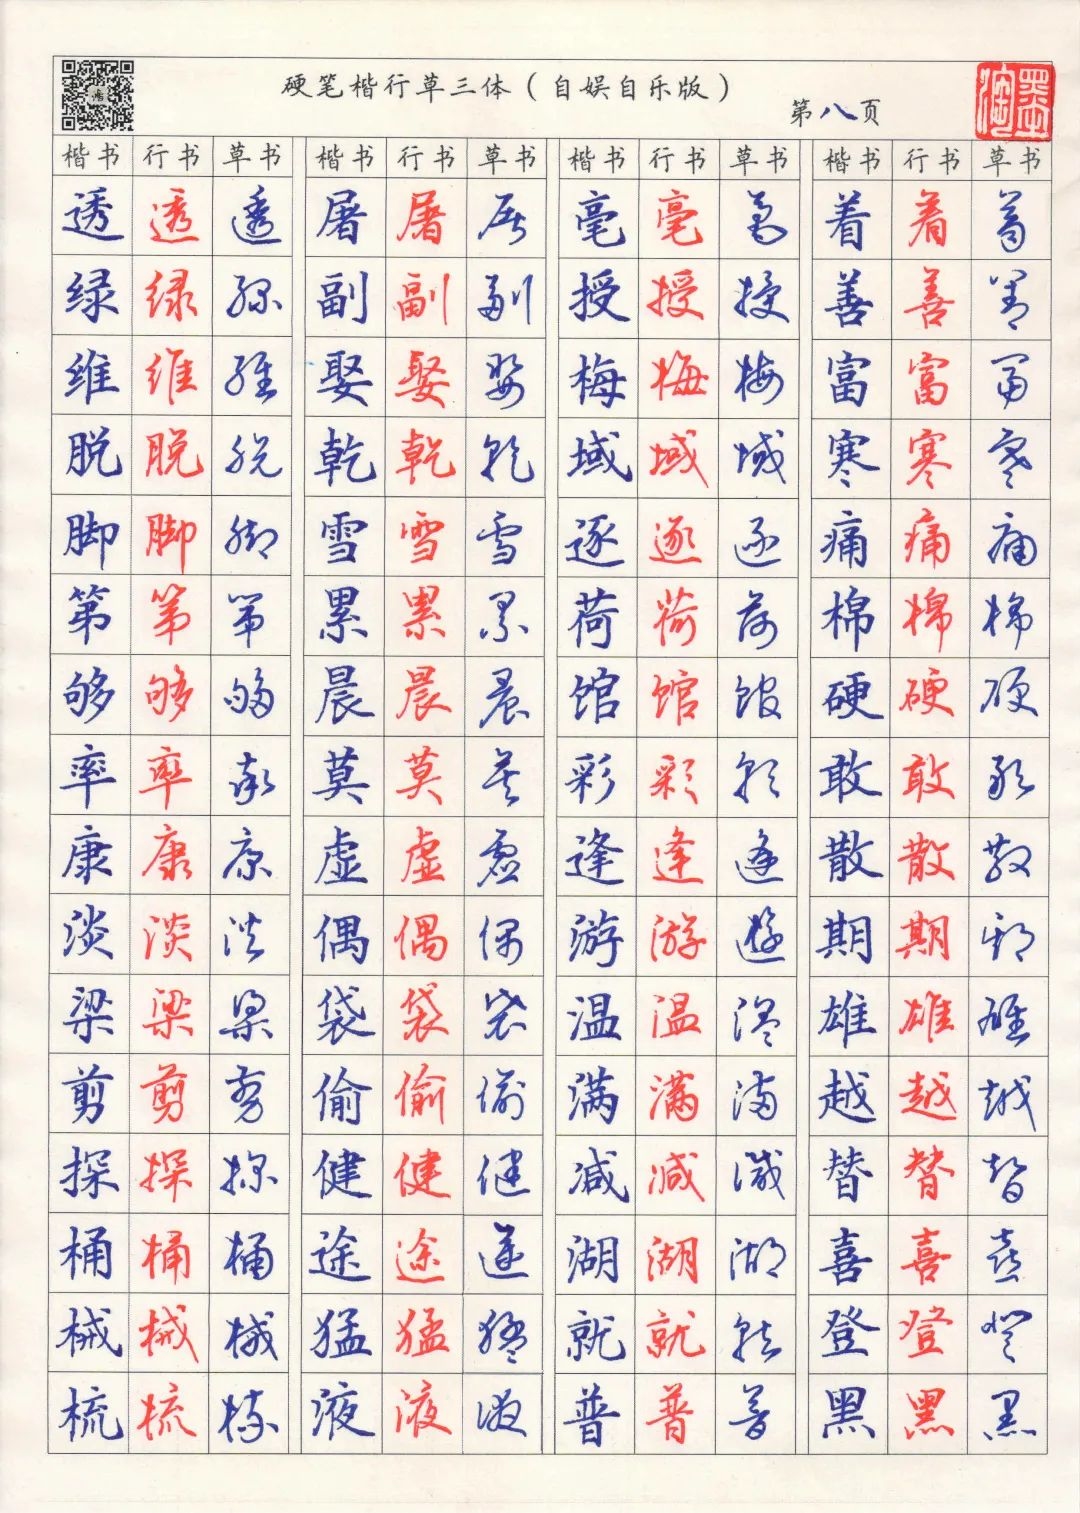 硬笔楷行草三体（自娱自乐版）
第八页
楷书 行书 草书 楷书 行书 草书 楷书 行书 草书 楷书 行书 草书
透 透 透 屠 屠 屠 毫 毫 毫 着 着 着
绿 绿 绿 副 副 副 授 授 授 善 善 善
维 维 维 娶 娶 娶 梅 梅 梅 富 富 富
脱 脱 脱 乾 乾 乾 域 域 域 寒 寒 寒
脚 脚 脚 雪 雪 雪 逐 逐 逐 痛 痛 痛
第 第 第 累 累 累 荷 荷 荷 棉 棉 棉
够 够 够 晨 晨 晨 馆 馆 馆 硬 硬 硬
率 率 率 莫 莫 莫 彩 彩 彩 敢 敢 敢
康 康 康 虚 虚 虚 逢 逢 逢 散 散 散
淡 淡 淡 偶 偶 偶 游 游 游 期 期 期
梁 梁 梁 袋 袋 袋 温 温 温 雄 雄 雄
剪 剪 剪 偷 偷 偷 满 满 满 越 越 越
探 探 探 健 健 健 减 减 减 替 替 替
桶 桶 桶 途 途 途 湖 湖 湖 喜 喜 喜
械 械 械 猛 猛 猛 就 就 就 登 登 登
梳 梳 梳 液 液 液 普 普 普 黑 黑 黑